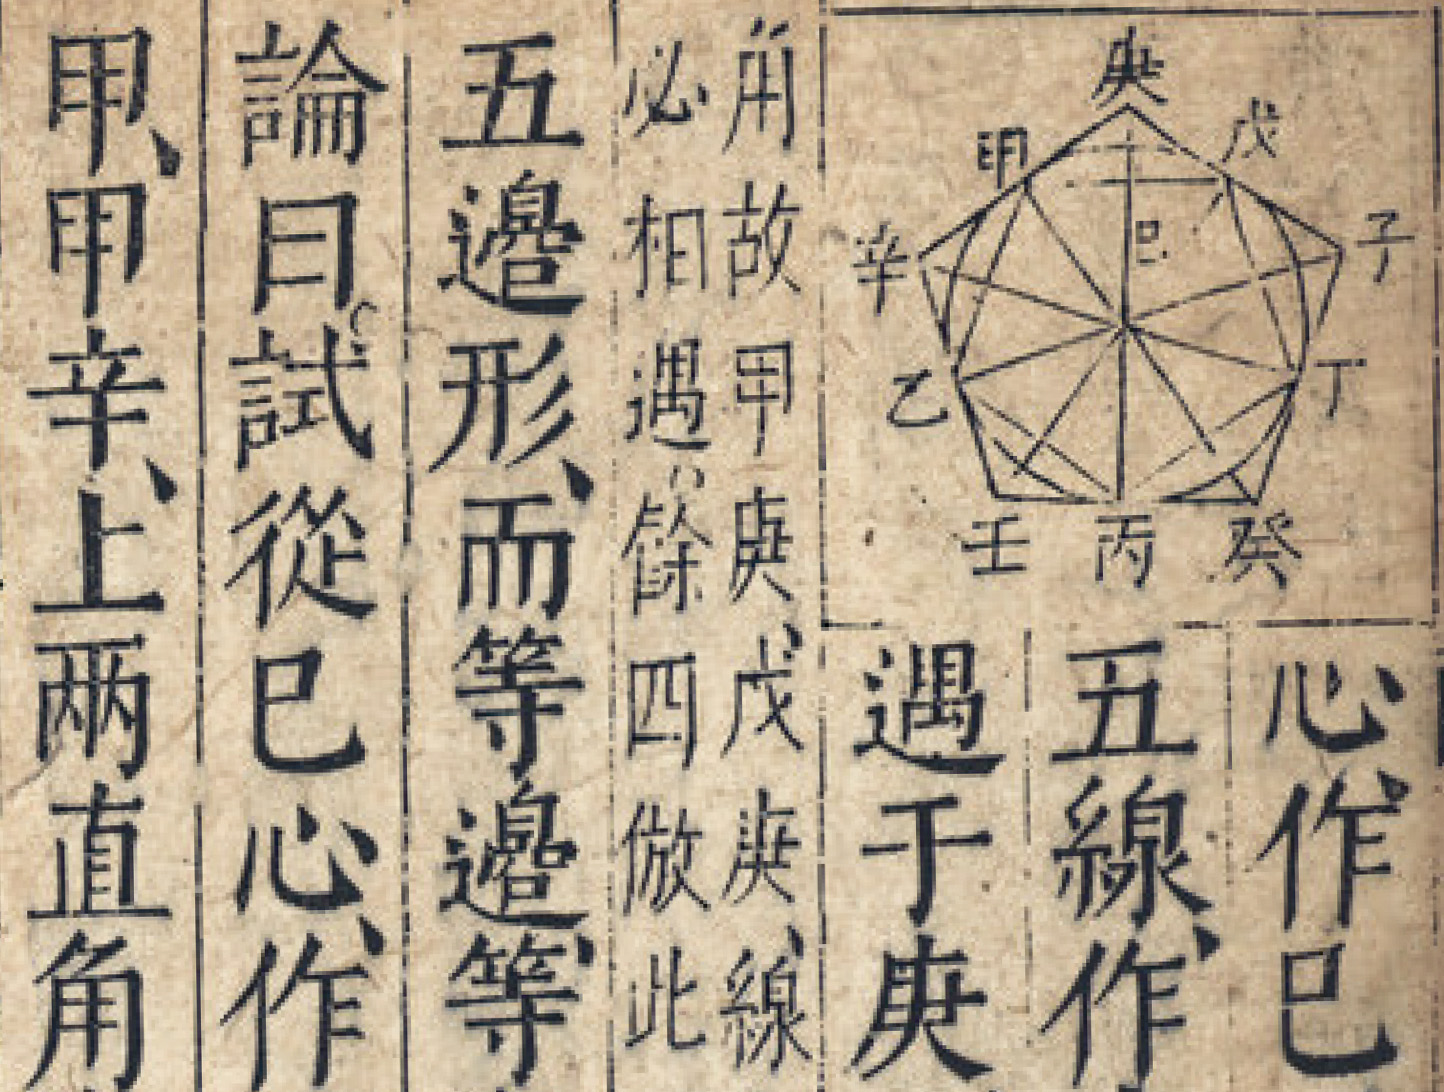 庚
甲
戊
辛
子
巳
乙
丁
壬
丙
癸
心作巳
五線作
遇于庚
角故甲庚戊庚線
必相遇餘四倣此
五邊形而等邊等
論曰試從巳心作
甲甲辛上兩直角